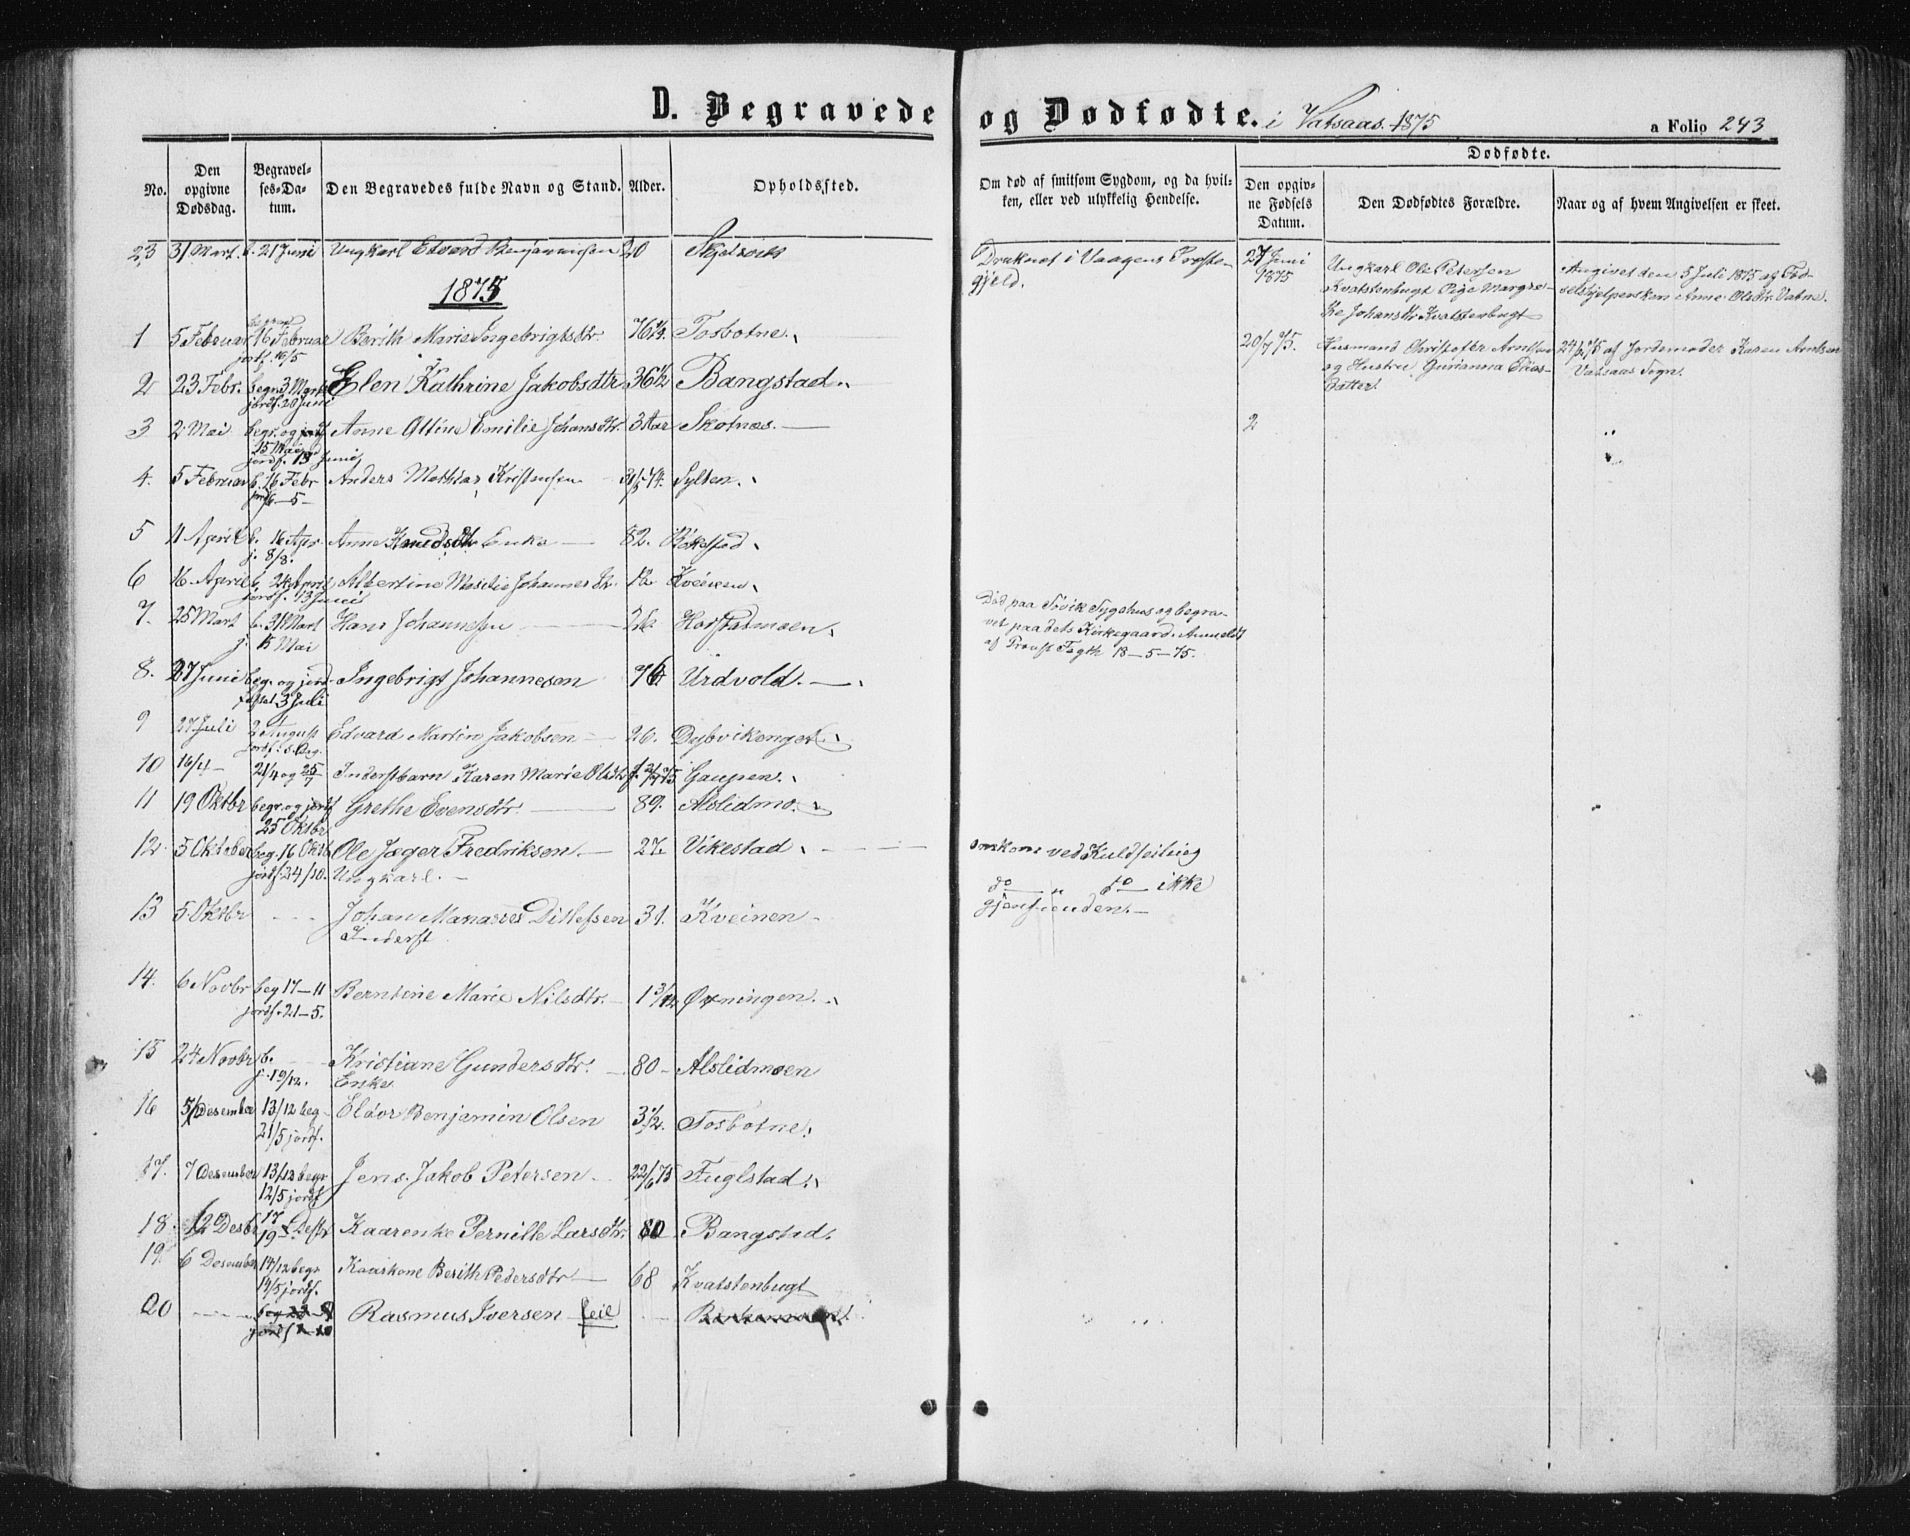 D. Begravede og Dødfødte. i Vatsaas 1875
a Folio 243
No.
Den opgivne Dødsdag.
Begravelses-Datum.
Den Begravedes fulde Navn og Stand.
Alder.
Opholdssted.
Om død af smitsom Sygdom, og da hvilken, eller ved ulykkelig Hendelse.
Dødfødte.
Den opgivne Fødsels Datum.
Den Dødfødtes Forældre.
Naar og af hvem Angivelsen er skeet.
23 31 Mart. b. 21 Juni Ungkarl Edvard Benjaminsen 20 Skjelsvik
Druknet i Vaagens Præstegjeld.
27 Juni 1875
Ungkarl Ole Petersen
Kvatstenbugt Pige Margre-
the Johansdtr Kvatstenbugt
Angivet den 5 Juli 1875 af Fød-
selshjelpersken Anne Olsdtr. Vatne.
1875
1 5 Februar begravet 16 Februar jordf. 16/5 Berith Marie Ingebrigtsdtr 76 1/2 Tosbotne.
20/7 75. Husmand Christoffer Arntsen
og Hustru Gurianna
Datter.
af Jordemoder Karen Arntsen
Vatsaas Sogn.
2 23 Febr. begr. 3 Marts jordf. 20 Juni Elen Kathrine Jakobsdtr 36 1/2 Bangstad
3 2 Mai begr. og jordf 15 Mai jordf. 13 Juni Anne Ottine Emilie Johansdtr. 3 Aar Skotnes.
2
4. 5 Februar b. 16 Febr jordf 16-5- Anders Mathias Kristensen 31/5 74. Sylten.
5 11 April b. 16 Apr j. 8/8. Anne Knudsdtr Enke 82.
6 16 April b. 24 April jordf. 13 Juni Albertine Johannesdtr. 12 Kveinen
7. 25 Mart b. 31 Mart j. 15 Mai Hans Johannessen 26. Horstadmoen.
Død paa Søvik Sygehus og begra-
vet paa dets Kirkegaard. Anmeldt
af Provst 18-5-75.
8. 27 Juni beg. og jord-
fæstet 3 Juli Ingebrigt Johannesen 76. Urdvold.
9 27 Juli 2 August jordf. s. Dag. Edvard Martin Jakobsen 26. Dybvikenget
10 16/4 21/4 og 25/7 Inderstbarn Karen Marie Olsdtr Gaupen.
11 19 Oktbr begr. og jordf 25 Oktbr Grethe Evensdtr 89. Alslidmo.
12 5 Oktober beg. 16 Oktb jordf. 24/10. Ole Jæger Fredriksen. 27. Vikestad
Ungkarl.
omkom ved Kuldseiling
13 5 Oktbr Johan Manasses Ditlefsen 31. Kveinen
Inderst
do " do ikke
gjenfunden.
14. 6 Novbr beg 17-11 jordf. 21-5. Berntine Marie Nilsdtr. 1 3/12 Øxningen.
15 24 Novbr b. j. 19/12. Kristiane Gundersdtr. 80 Alslidmoen
Enke
16 5/Desember 13/12 beg 21/5 jordf. Eliöor Benjamin Olsen 3 1/2. Tosbotne.
17. 7 Desember 13/12 begr 12/5 jordf Jens Jakob Petersen 22/6 75 Fuglstad.
18. 12 Desbr 17 19 Desbr Kaarenke Pernille Larsdtr. 80 Bangstad.
19. 6 Desember 14/12 begr 14/5 jordf. Kaarkone Berith Pedersdtr 68 Kvatstenbugt
20 beg jordf Rasmus Iversen feil